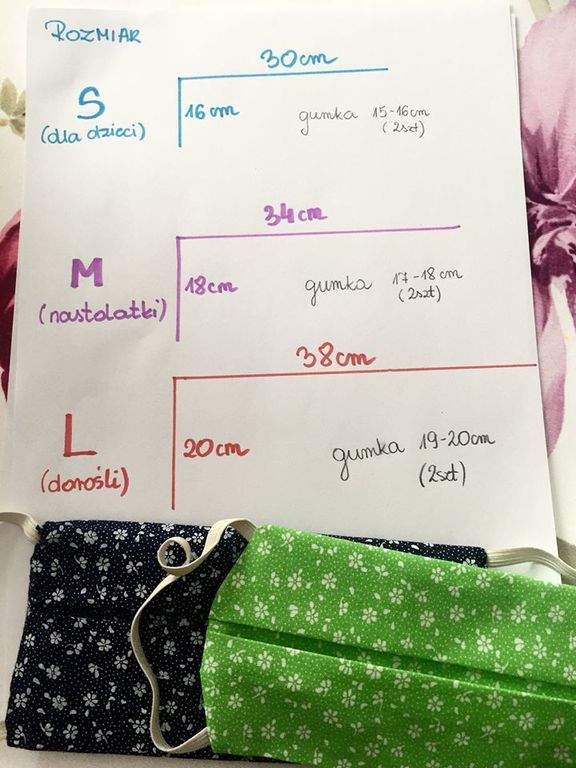 ROZMIAR
30cm
S
16cm
gumka 15-16cm
(dla dzieci)
(2szt)
34cm
M
18cm
gumka 17-18cm
(nastolatki)
(2szt)
38cm
L
20cm
gumka 19-20cm
(dorośli)
(2szt)